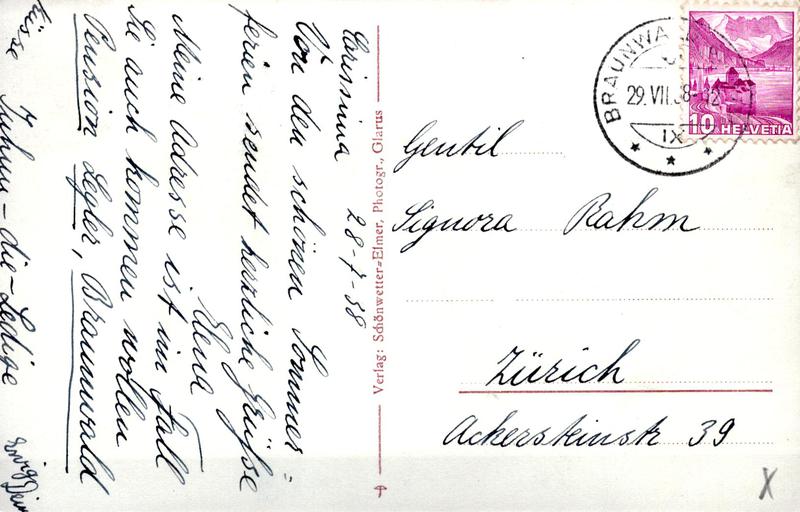 Carissima 28-7-38
Von den schönen Sommer=
ferien sendet herzliche Grüsse
Elena
Meine Adresse ist im Fall
Sie auch kommen wollen
Pension Legler, Braunwald
Verlag: Schönwetter=Elmer, Photogr., Glarus
BRAUNWA
29.VII.38-
IX
10 HELVETIA
Gentil
Signora Rahm
Zürich
Ackersteinstr 39
X